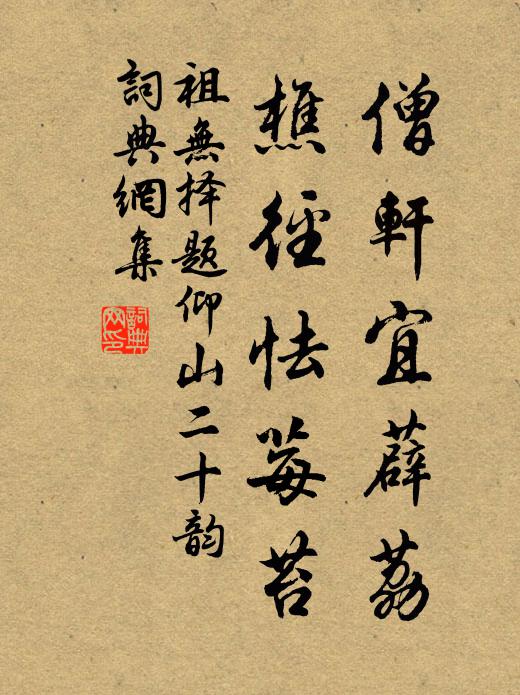 僧軒宜薜荔
樵徑怯莓苔
祖無择题仰山二十韵
詞典網集
詞典网印